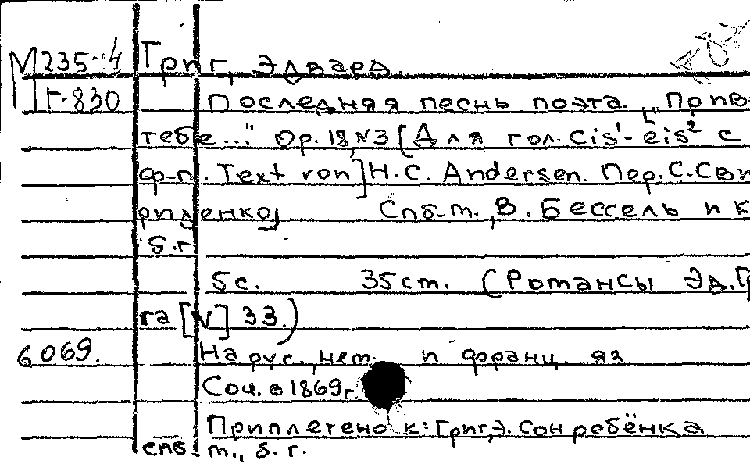 М235-4 Григ, Эдвард.
Г-830 Последняя песнь поэта. "Приво
тебе..." Op. 18, N3 [Для гол. cis'-eis² с
ф-п. Text von] H. C. Andersen. Пер. С. Сви
риденко] Спб-м., В. Бессель и К
б. г.
5с. 35cm. (Романсы Эд. Гр
га [N] 33.)
6069. На рус., нем. и франц. яз
Соч. в 1869г.
Приплетено к: Григ, Э. Сон ребёнка
спб. м., б. г.